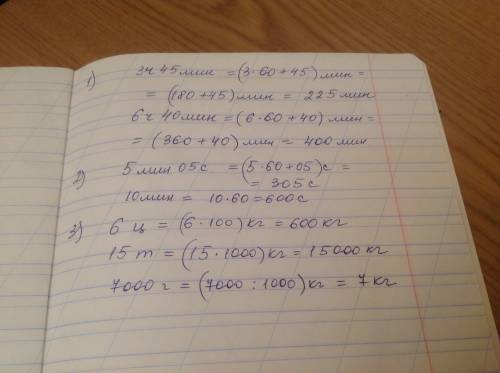 1) 3ч 45 мин = (3·60+45) мин =
= (180+45) мин = 225 мин
6 ч 40 мин = (6·60+40) мин =
= (360+40) мин = 400 мин
2) 5 мин 05 с = (5·60+05) с =
= 305 с
10 мин = 10·60 = 600 с
3) 6 ц = (6·100) кг = 600 кг
15 т = (15·1000) кг = 15000 кг
7000 г = (7000 : 1000) кг = 7 кг